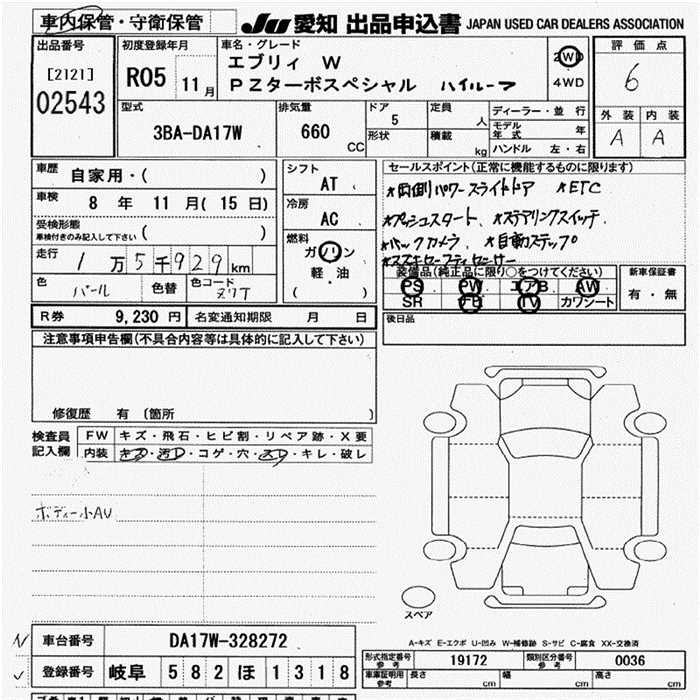 車内保管・守衛保管 JU 愛知 出品申込書 JAPAN USED CAR DEALERS ASSOCIATION
出品番号 初度登録年月 車名・グレード 評価点
[2121] R05 11月 エブリィ W 2WD 6
02543 PZターボスペシャル ハイルーフ 4WD
型式 排気量 ドア 定員 ディーラー・並行 外装 内装
3BA-DA17W 660 CC 5 人 モデル年式 A A
形状 積載 kg ハンドル 左・右
車歴 自家用・( ) シフト セールスポイント(正常に機能するものに限ります)
AT *両側パワースライドドア *ETC
車検 8年 11月(15日) 冷房
AC *プッシュスタート、*ステアリングスイッチ
受検形態 燃料 *バックカメラ *自動ステップ
車検付きのみ記入して下さい ( ) ガソリン *スズキセーフティセンサー
走行 1万5千929km 軽・油 装備品(純正品に限り○をつけてください) 新車保証書
色 色替 色コード ( ) PS PW エアB AW 有・無
パール ZVR SR TV カワシート
R券 9,230円 名変通知期限 月 日 後日品
注意事項申告欄(不具合内容等は具体的に記入して下さい)
修復歴 有 〔箇所 〕
検査員 FW キズ・飛石・ヒビ割・リペア跡・X要
記入欄 内装 キズ・汚レ・コゲ・穴・スレ・キレ・破レ
ボディー小AU
スペア
A-キズ E-エクボ U-凹み W-補修跡 S-サビ C-腐食 XX-交換済
車台番号 DA17W-328272
型式指定番号 参考 19172 類別区分番号 参考 0036
登録番号 岐阜 582 ほ 1318
車庫証明用 参考 長さ cm 幅 cm 高さ cm